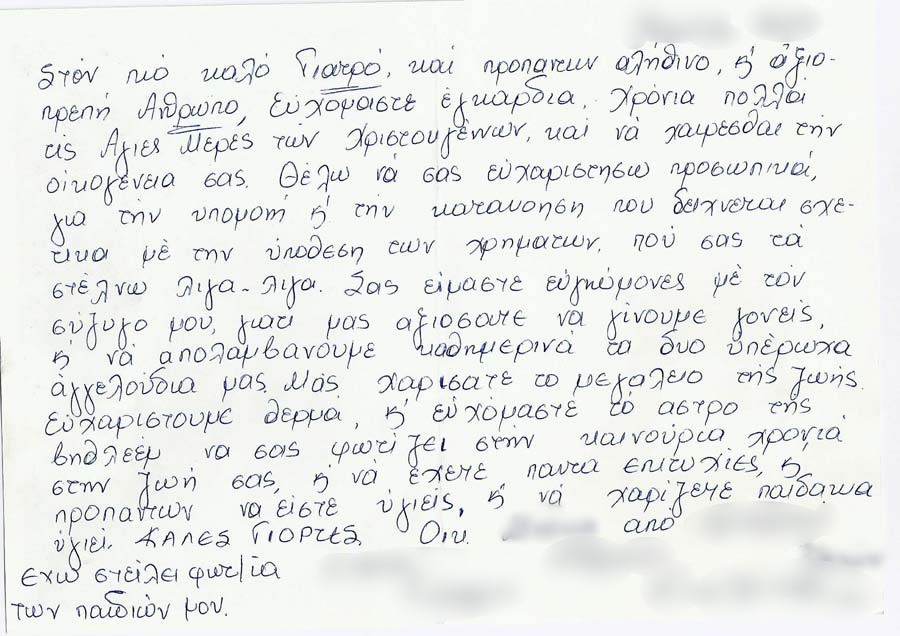 Στόν πιό καλό Γιατρό, καί προπαντων αλήθινο, κ' άξιο-
πρεπή Ανθρωπο, Εύχόμαστε έγκάρδια, χρόνια πολλά
τις Αγιες Μερες των Χριστουγέννων, και νά χαιρεσθαι την
οίκογένεια σας. Θέλω νά σας εύχαριστησω προσωπικά,
για την υπομοτή κ' την κατανοηση που δειχνεται σχε-
τικα με την ύποθεση των χρηματων, πού σας τά
στέλνω λιγα-λιγα. Σας είμαστε εύγνώμονες με τόν
σύζυγο μου, γιατι μας αξιοσατε να γίνουμε γονείς,
κ' νά απολαμβανουμε καθημερινά τα δυο ύπέρωχα
άγγελούδια μας. Μάς χαρισατε το μεγαλειο της ζωής.
Εύχαριστουμε θερμα, κ' εύχόμαστε τό αστρο της
βηθλεέμ να σας φωτίζει στην καινούρια χρονιά
στην ζωή σας, κ' νά έχετε παντα επιτυχίες, κ'
προπαντων να είστε ύγιείς, κ' νά χαρίζετε παιδακια
ύγιεί. ΚΑΛΕΣ ΓΙΟΡΤΕΣ. Οικ. από
Εχω στείλει φωτ/ία
των παιδιών μου.